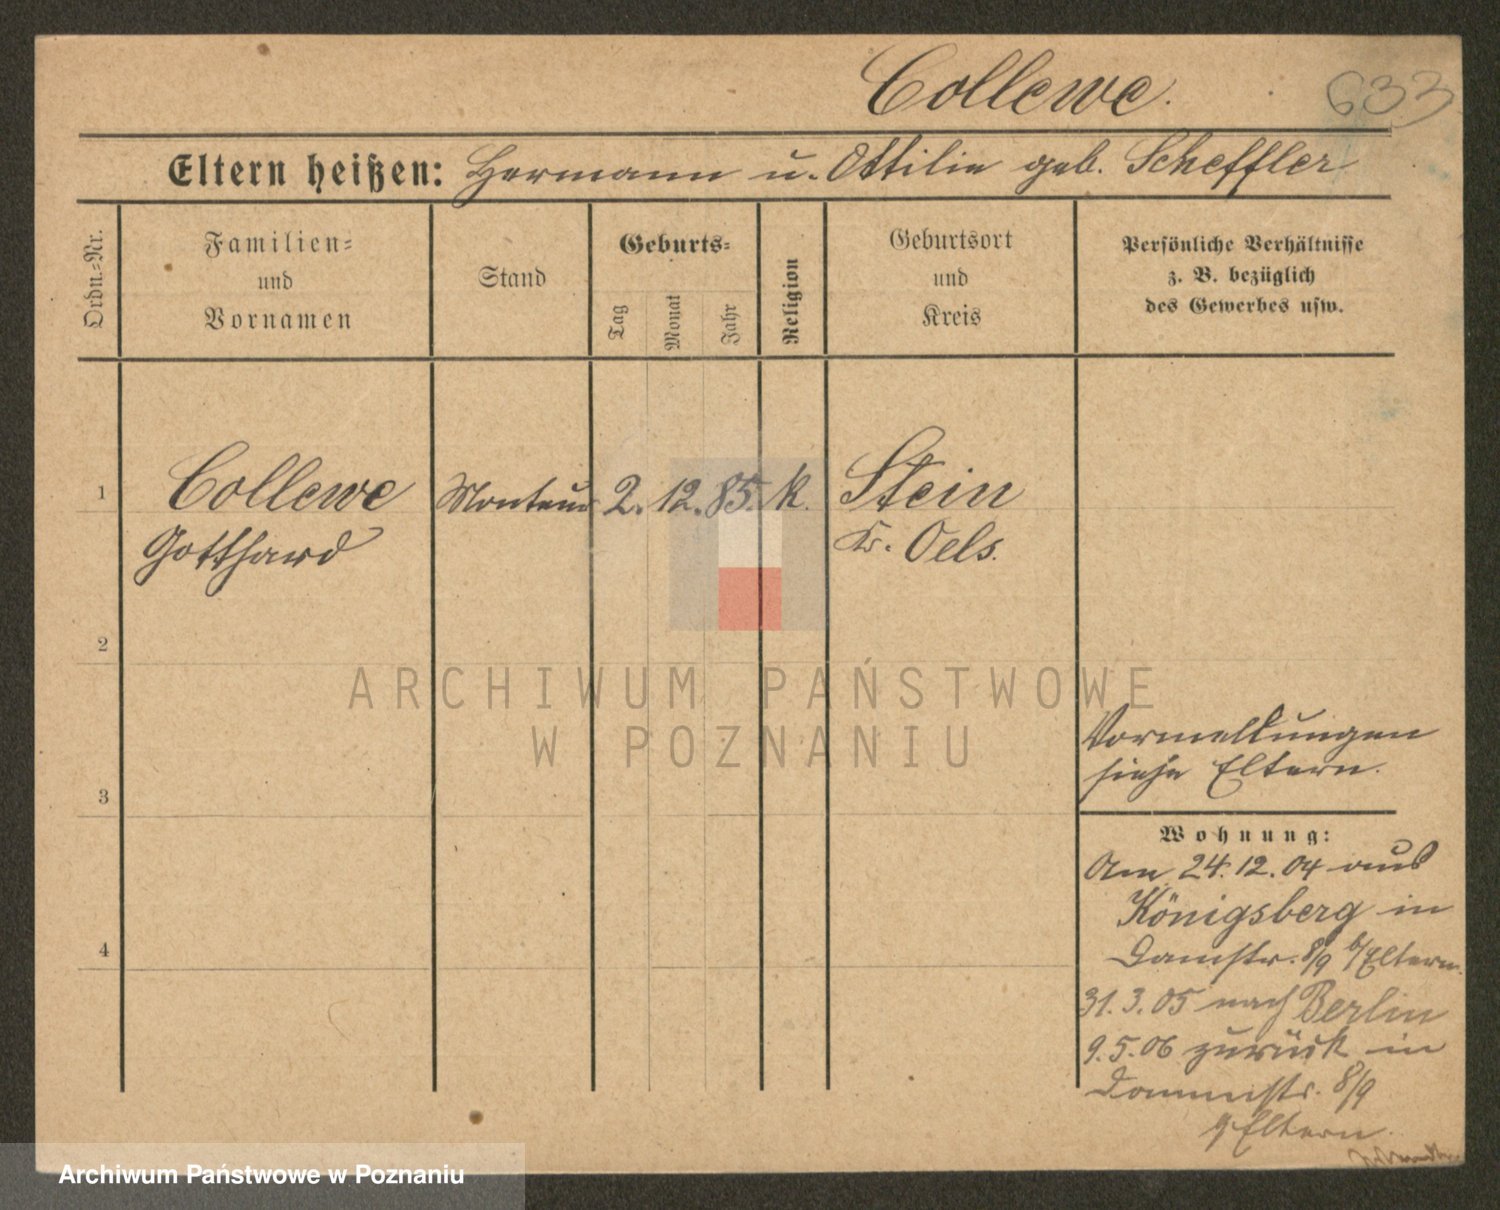 Collewe.
633
Eltern heißen: Hermann u. Ottilie geb. Scheffler
Ordn.-Nr.
Familien-
und
Vornamen
Stand
Geburts-
Tag
Monat
Jahr
Religion
Geburtsort
und
Kreis
Persönliche Verhältnisse
z. B. bezüglich
des Gewerbes usw.
1
Collewe Monteur 2. 12. 85. k. Stein
Gotthard Kr. Oels.
2
3
4
Vormeldungen
siehe Eltern.
Wohnung:
Am 24.12.04 aus
Königsberg in
8/9 b/Eltern.
31.3.05 nach Berlin
9.5.06 zurück in
8/9
Eltern.
ARCHIWUM PAŃSTWOWE
W POZNANIU
Archiwum Państwowe w Poznaniu